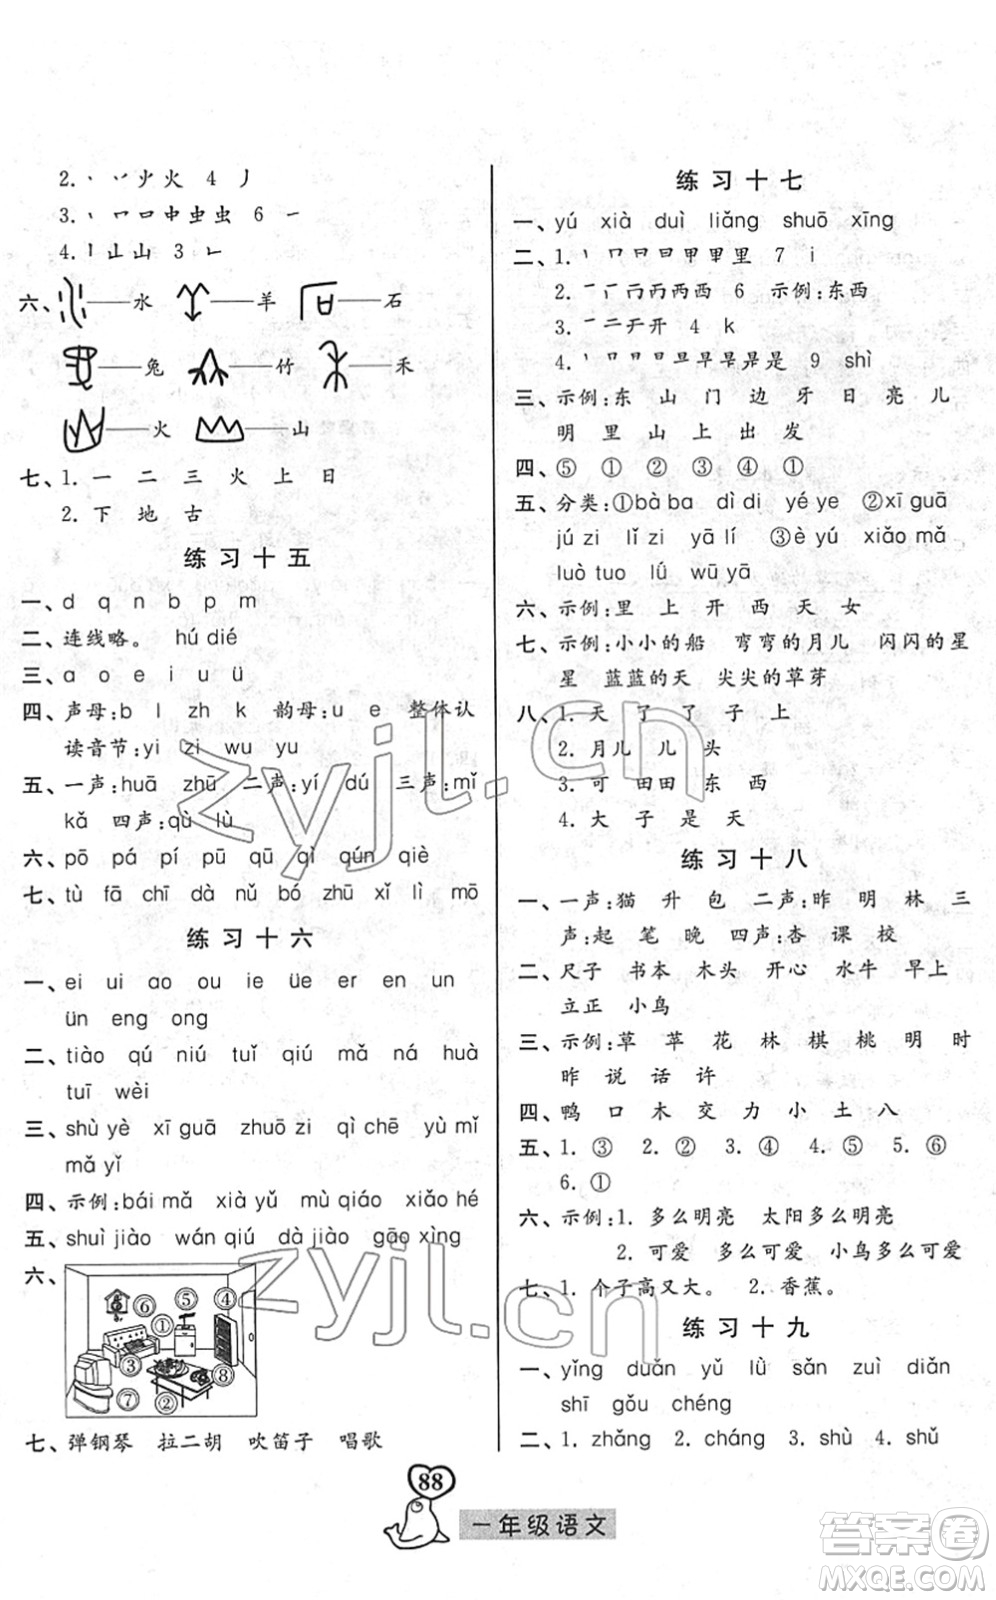 2.丶丷少火 4 丿
3.丶冖口中虫虫 6 ㇀
4.丨山山 3 ㇗
六、——水 ——羊 ——石
——兔 ——竹 ——禾
——火 ——山
七、1.一 二 三 火 上 日
2.下 地 古
练习十五
一、d q n b p m
二、连线略。 hú dié
三、a o e i u ü
四、声母:b l zh k 韵母:u e 整体认
读音节:yi zi wu yu
五、一声:huā zhū 二声:yí dú 三声:mǐ
kǎ 四声:qù lù
六、pō pá pí pū qū qì qún qiè
七、tù fā chī dà nǔ bó zhū xǐ lì mō
练习十六
一、ei ui ao ou ie üe er en un
ün eng ong
二、tiào qú niú tuǐ qiú mǎ ná huà
tuī wèi
三、shù yè xī guā zhuō zi qì chē yù mǐ
mǎ yǐ
四、示例:bái mǎ xià yǔ mù qiáo xiǎo hé
五、shuì jiào wán qiú dà jiào gāo xìng
六、
⑥ ⑤ ④
①
③ ⑧
⑦ ②
七、弹钢琴 拉二胡 吹笛子 唱歌
练习十七
一、yú xià duì liǎng shuō xīng
二、1.丶冂日日甲甲里 7 i
2.一丆丙丙两西 6 示例:东西
3.一二于开 4 k
4.丶冂日日旦早早昰是 9 shì
三、示例:东 山 门 边 牙 日 亮 儿
明 里 山 上 出 发
四、⑤ ② ③ ④ ①
五、分类:①bà ba dì di yé ye ②xī guā
jú zi lǐ zi yā lí ③è yú xiǎo mǎ
luò tuo lǘ wū yā
六、示例:里 上 开 西 天 女
七、示例:小小的船 弯弯的月儿 闪闪的星
星 蓝蓝的天 尖尖的草芽
八、1.天 了 了 子 上
2.月儿 儿 头
3.可 田田 东 西
4.大 子 是 天
练习十八
一、一声:猫 升 包 二声:昨 明 林 三
声:起 笔 晚 四声:杏 课 校
二、尺子 书本 木头 开心 水牛 早上
立正 小鸟
三、示例:草 苹 花 林 棋 桃 明 时
昨 说 话 许
四、鸭 口 木 交 力 小 土 八
五、1.③ 2.② 3.④ 4.⑤ 5.⑥
6.①
六、示例:1.多么明亮 太阳多么明亮
2.可爱 多么可爱 小鸟多么可爱
七、1.个子高又大。 2.香蕉。
练习十九
一、yǐng duǎn yǔ lǜ sǎn zuì diǎn
shī gǒu chéng
二、1. zhǎng 2. cháng 3. shù 4. shǔ
88
一年级语文
zyjl.cn
zyjl.cn
答案圈
MXQE.COM